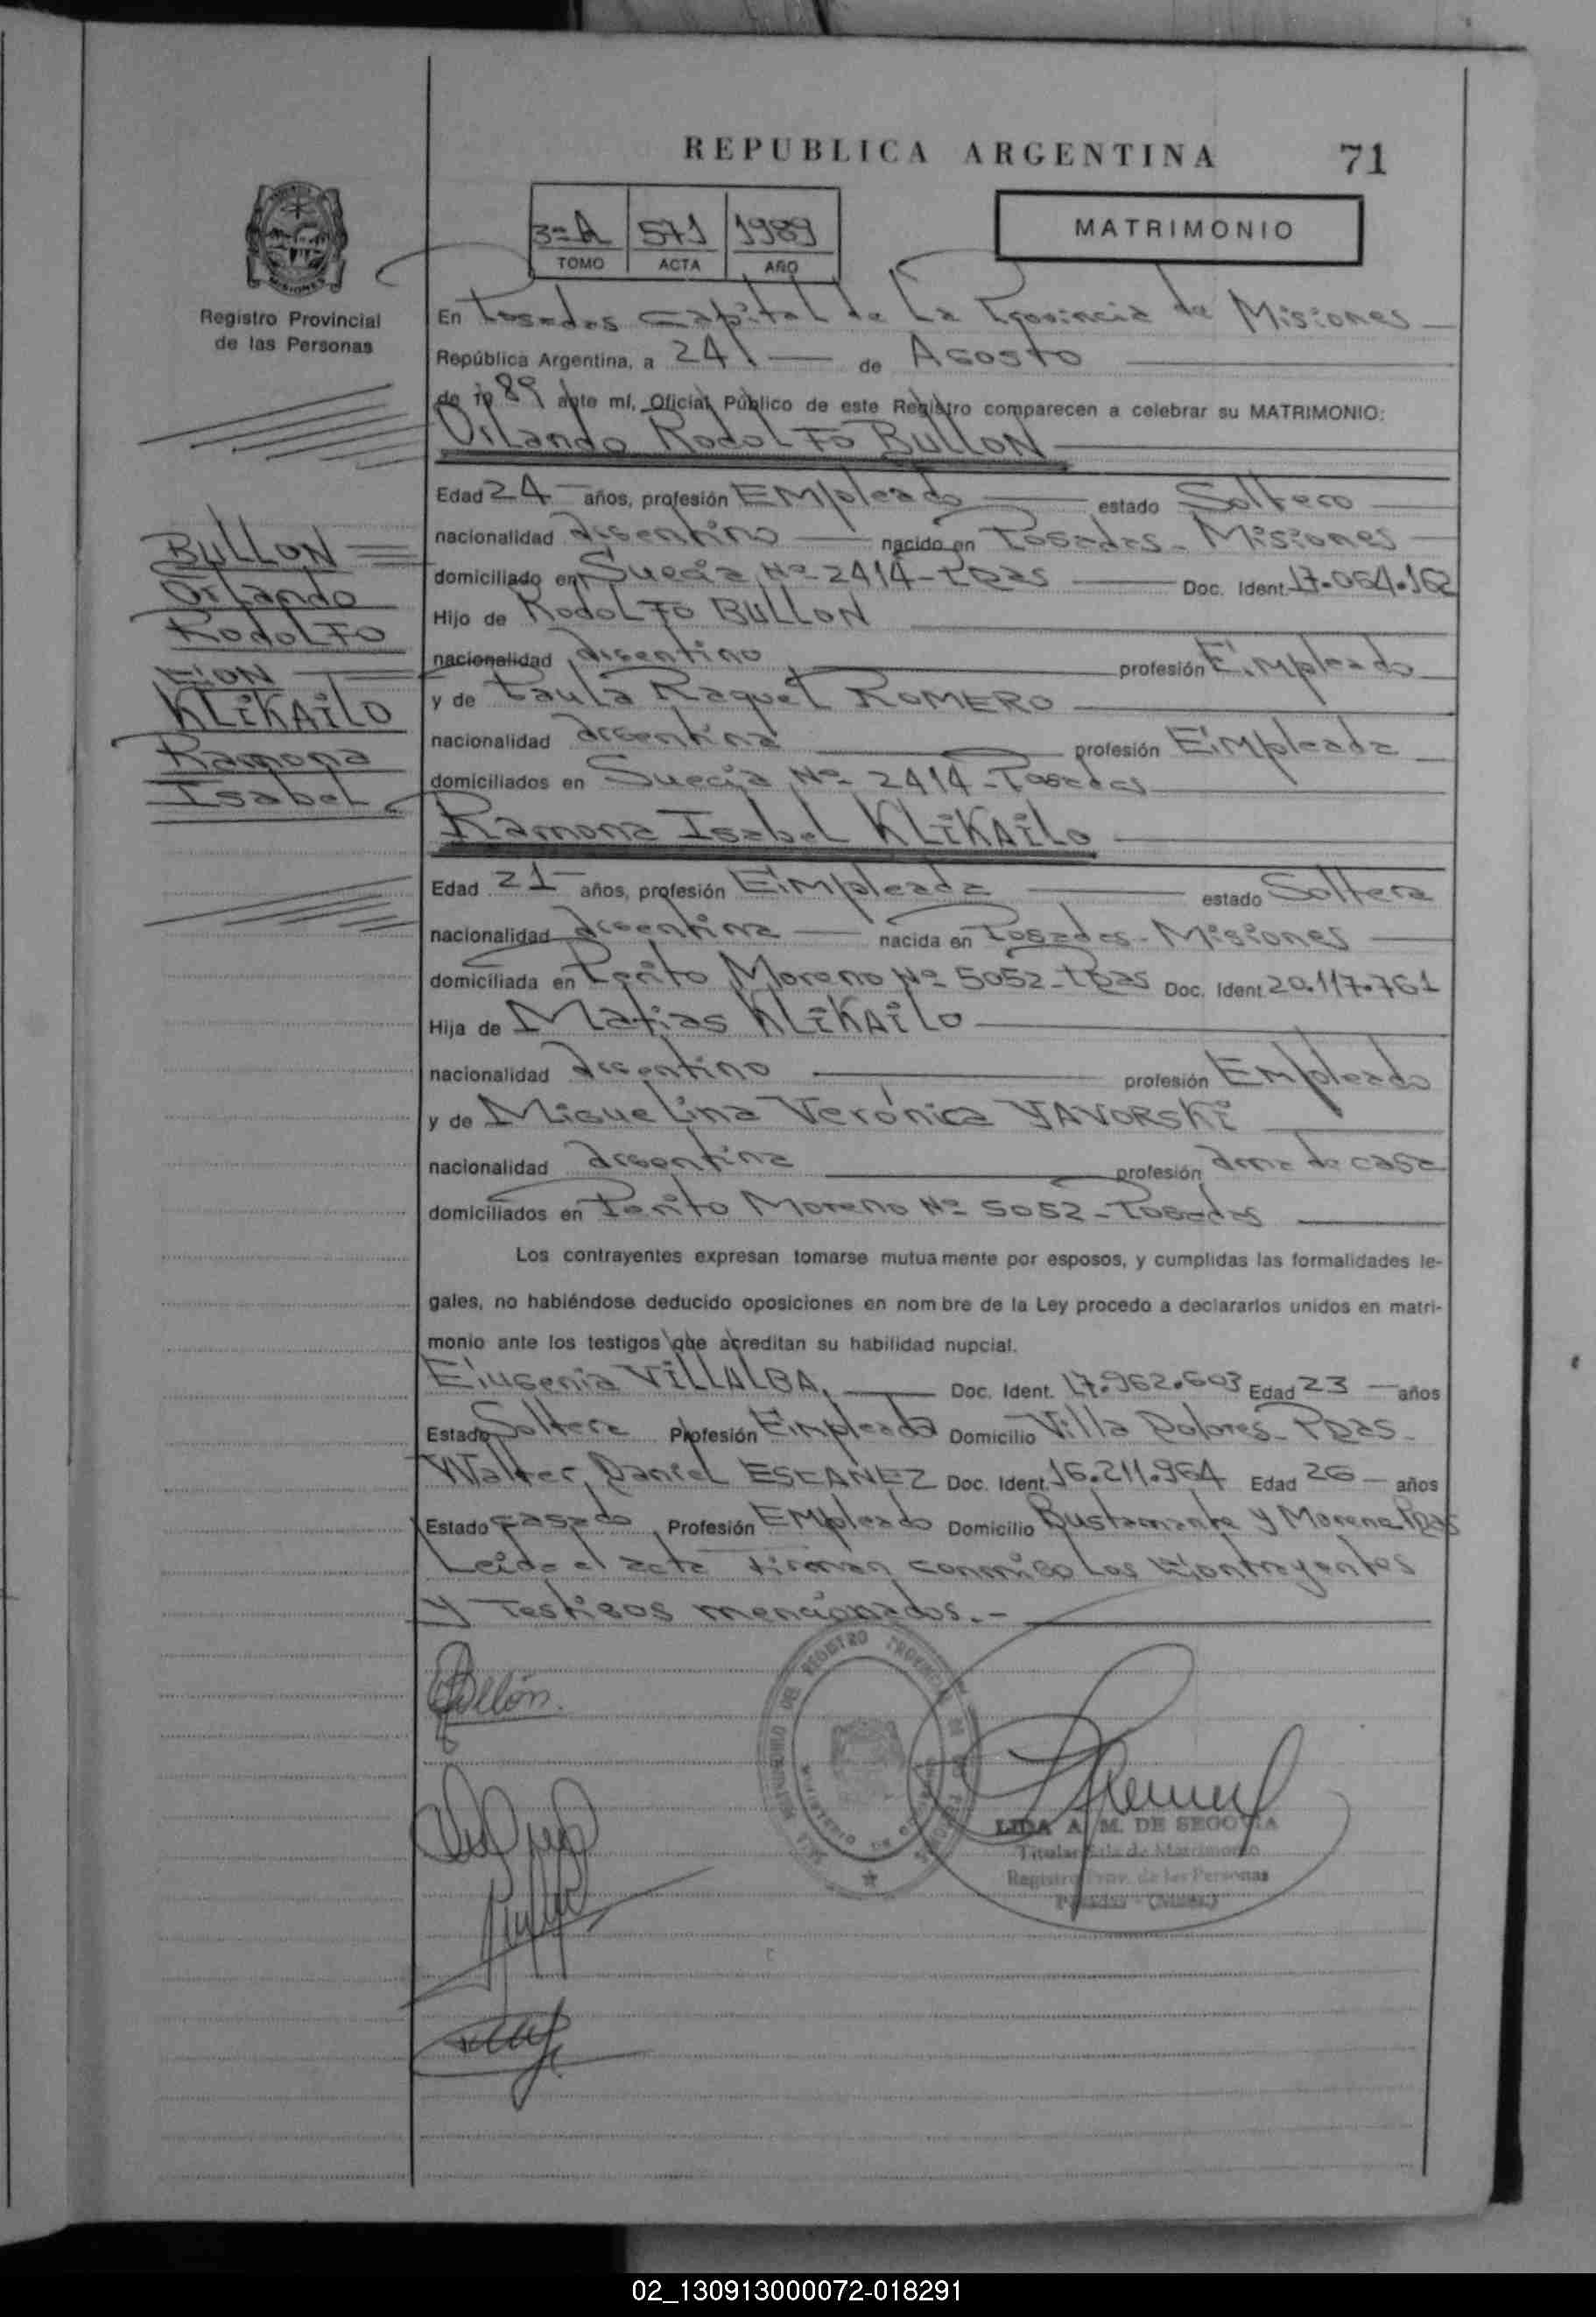 REPUBLICA ARGENTINA
71
3=A 571 1989
TOMO ACTA AÑO
MATRIMONIO
MISIONES
Registro Provincial
de las Personas
En Posadas Capital de La Provincia de Misiones
República Argentina, a 24 de Agosto
de 1989 ante mí, Oficial Público de este Registro comparecen a celebrar su MATRIMONIO:
Orlando Rodolfo BULLON
Edad 24 años, profesión Empleado estado Soltero
nacionalidad argentino nacido en Posadas - Misiones
domiciliado en Suecia Nº 2414 - Pdas Doc. Ident. 17.064.162
Hijo de Rodolfo BULLON
nacionalidad argentino profesión Empleado
y de Paula Raquel ROMERO
nacionalidad argentina profesión Empleada
domiciliados en Suecia Nº 2414 - Posadas
Ramona Isabel KLIKAILO
Edad 21 años, profesión Empleada estado Soltera
nacionalidad argentina nacida en Posadas - Misiones
domiciliada en Perito Moreno Nº 5052 - Pdas Doc. Ident. 20.117.761
Hija de Matias KLIKAILO
nacionalidad argentino profesión Empleado
y de Miguelina Verónica YAVORSKI
nacionalidad argentina profesión ama de casa
domiciliados en Perito Moreno Nº 5052 - Posadas
Los contrayentes expresan tomarse mutuamente por esposos, y cumplidas las formalidades le-
gales, no habiéndose deducido oposiciones en nombre de la Ley procedo a declararlos unidos en matri-
monio ante los testigos que acreditan su habilidad nupcial.
Eugenia VILLALBA, Doc. Ident. 17.962.603 Edad 23 años
Estado Soltera Profesión Empleada Domicilio Villa Dolores - Pdas -
Walter Daniel ESCAÑEZ Doc. Ident. 16.211.964 Edad 26 años
Estado casado Profesión Empleado Domicilio Bustamante y Moreno Pdas
Leida el acta firman conmigo Los Contrayentes
y Testigos mencionados.-
BULLON
Orlando
Rodolfo
CON
KLIKAILO
Ramona
Isabel
Bullón.
LIDA A. M. DE SEGOVIA
Titular Sala de Matrimonio
Registro Prov. de las Personas
Posadas - (Mnes.)
02_130913000072-018291